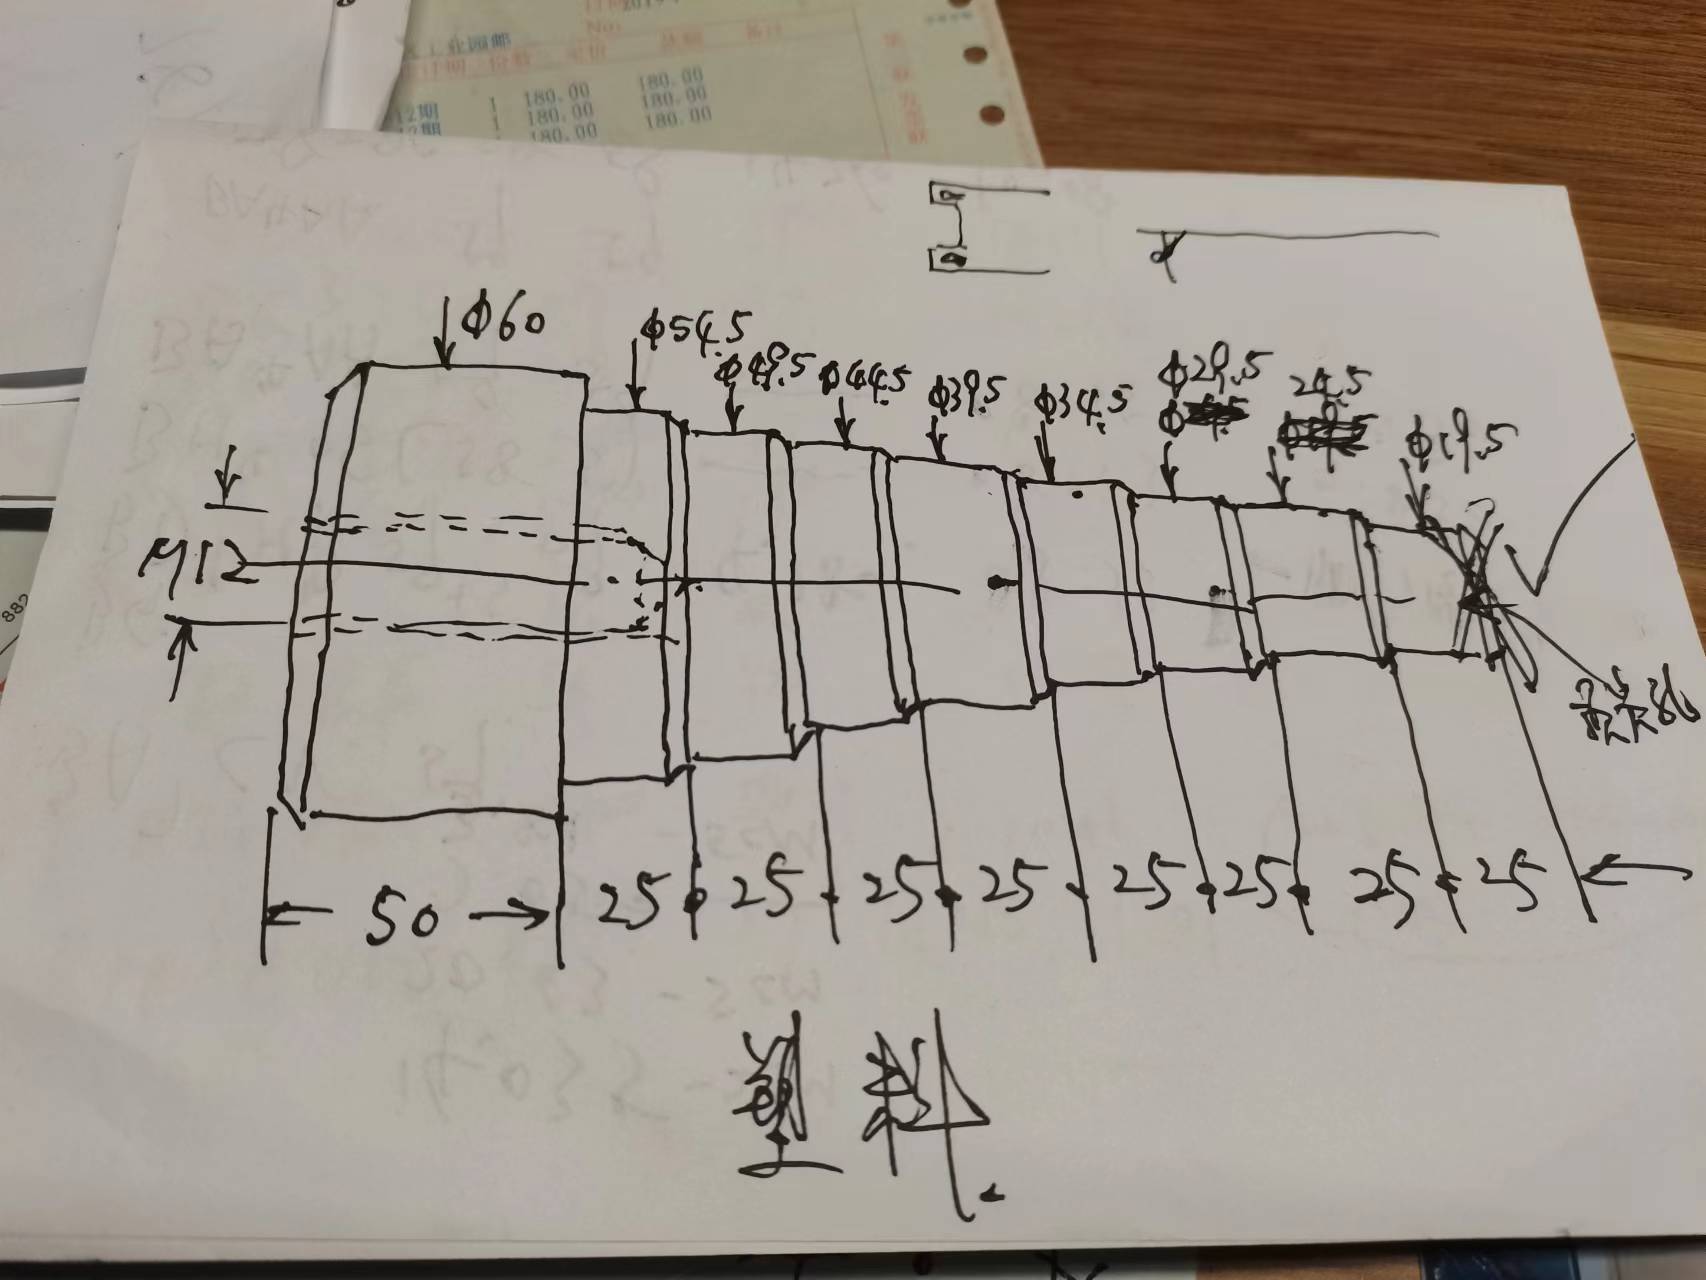 No.
12期 1 180.00 180.00
12期 1 180.00 180.00
180.00 180.00
882
Φ60
Φ54.5
Φ49.5
Φ44.5
Φ39.5
Φ34.5
Φ29.5
24.5
Φ19.5
M12
50
25
25
25
25
25
25
25
25
塑料